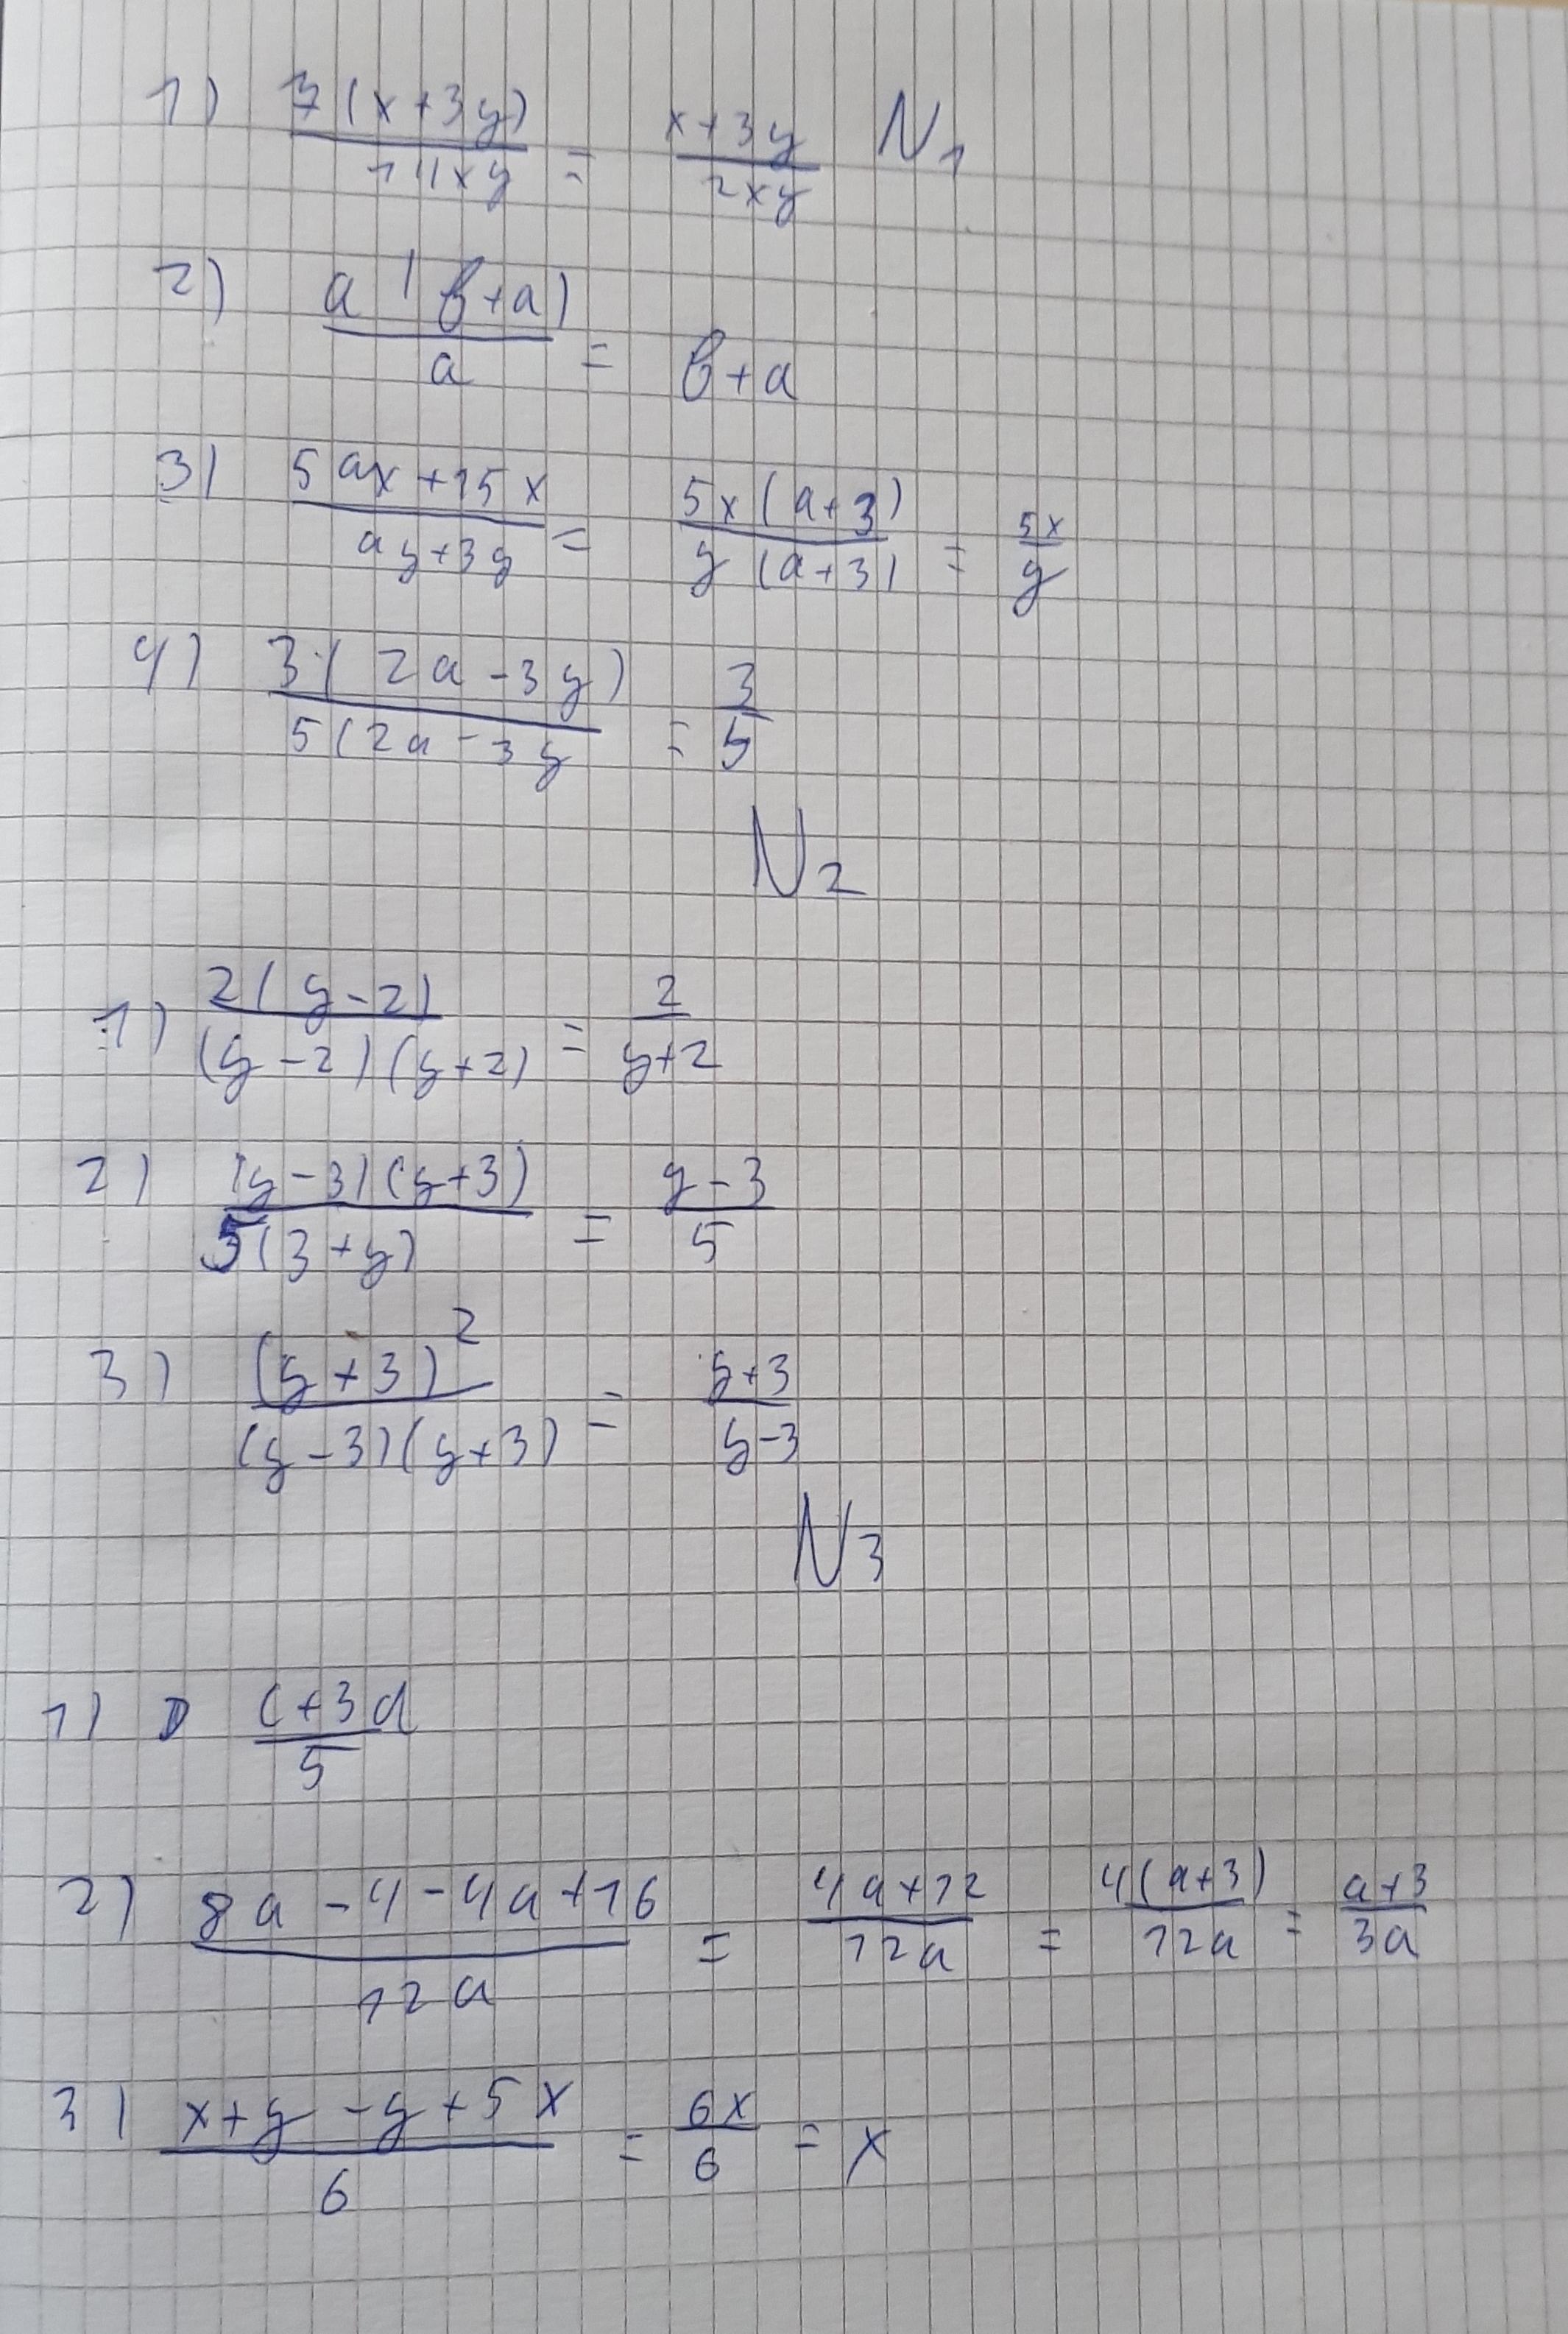 1) 7(x+3y)/14xy = x+3y/2xy N1
2) a(b+a)/a = b+a
3) 5ax+15x/ay+3y = 5x(a+3)/y(a+3) = 5x/y
4) 3(2a-3y)/5(2a-3y = 3/5
N2
1) 2(y-2)/(y-2)(y+2) = 2/y+2
2) (y-3)(y+3)/5(3+y) = y-3/5
3) (y+3)²/(y-3)(y+3) = y+3/y-3
N3
1) c+3d/5
2) 8a-4-4a+16/12a = 4a+12/12a = 4(a+3)/12a = a+3/3a
3) x+y-y+5x/6 = 6x/6 = x